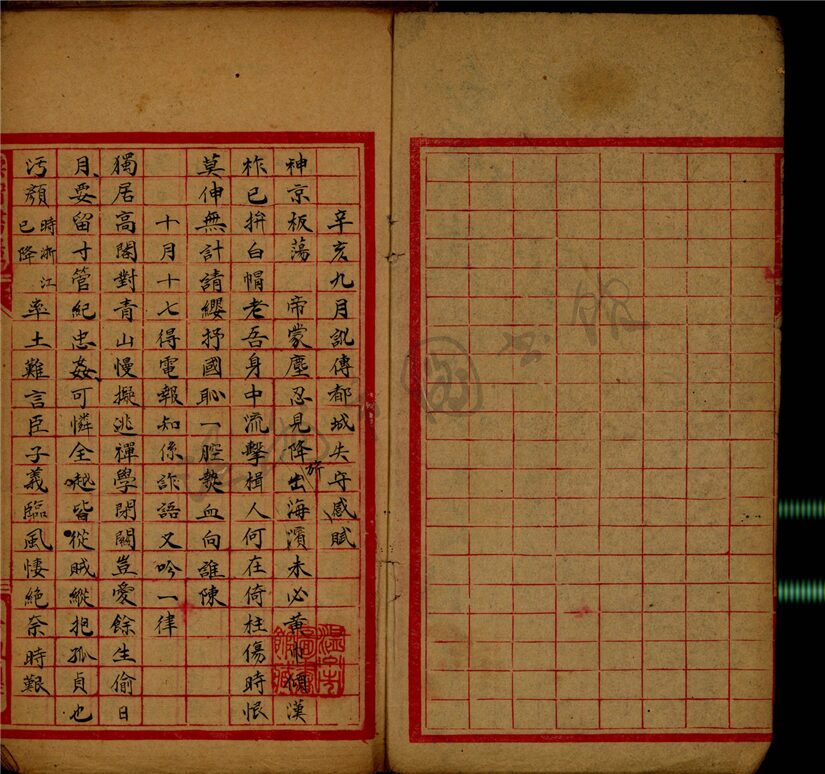 辛亥九月訛傳都城失守感賦
神京板蕩　帝蒙塵忍見降旂出海濱未必黄巾傾漢
柞已拚白帽老吾身中流擊楫人何在倚柱傷時恨
莫伸無計請纓抒國恥一腔熱血向誰陳
十月十七得電報知係詐語又吟一律
獨居高閣對青山慢擬逃禪學閉關豈愛餘生偷日
月要留寸管紀忠姦可憐全越皆從賊縱抱孤貞也
汚顏時浙江已降率土難言臣子義臨風悽絕奈時艱